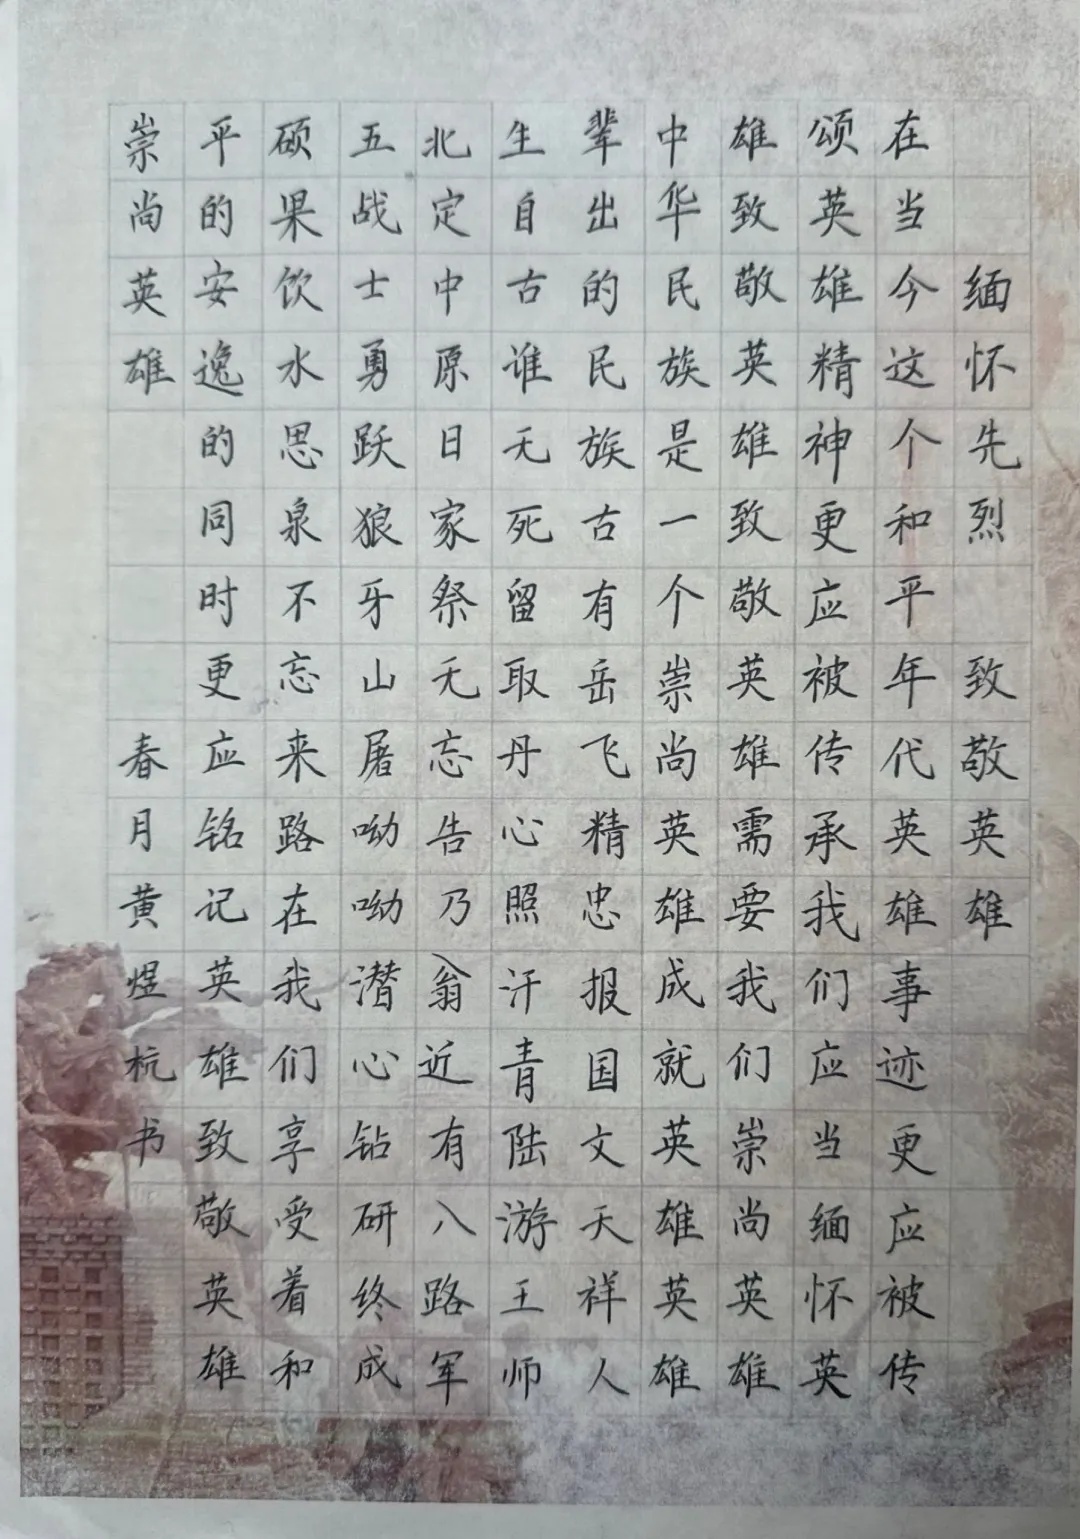 缅怀先烈 致敬英雄
在当今这个和平年代英雄事迹更应被传
颂英雄精神更应被传承我们应当缅怀英
雄致敬英雄致敬英雄需要我们崇尚英雄
中华民族是一个崇尚英雄成就英雄英雄
辈出的民族古有岳飞精忠报国文天祥人
生自古谁无死留取丹心照汗青陆游王师
北定中原日家祭无忘告乃翁近有八路军
五战士勇跃狼牙山屠呦呦潜心钻研终成
硕果饮水思泉不忘来路在我们享受着和
平的安逸的同时更应铭记英雄致敬英雄
崇尚英雄 春月黄煜杭书